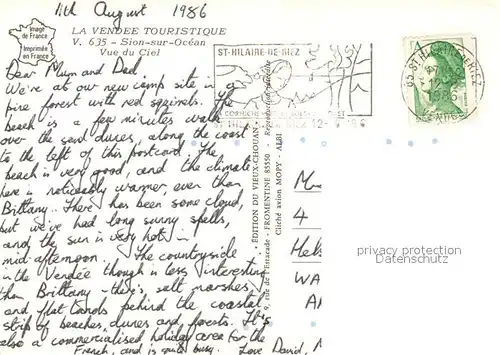 11th August 1986
Image
de France
Imprimée
en France
LA VENDEE TOURISTIQUE
V. 635 - Sion-sur-Océan
Vue du Ciel
Dear Mum and Dad
We're at our new camp site in a
pine forest with red squirrels. The
beach is a few minutes walk
over the sand dunes, along the coast
to the left of this postcard. The
beach is very good, and the climate
here is noticeably warmer, even than
Brittany. There has been some cloud,
but we've had long sunny spells,
and the sun is very hot in
mid-afternoon. The countryside
in the Vendée though is less interesting
than Brittany - there's salt marshes
and flat lands behind the coastal
strip of beaches, dunes and forests. It's
also a commercialised holiday area for the
French, and is quite busy. Love David,
ST-HILAIRE-DE-RIEZ
• EDITION DU VIEUX-CHOUAN •
rue de l'Estacade - FROMENTINE 85550 - Reproduction interdite
Cliché avion MOPY - ALBI
85 ST HILAIRE DE RIEZ
VENDEE
A
4
WA
privacy protection